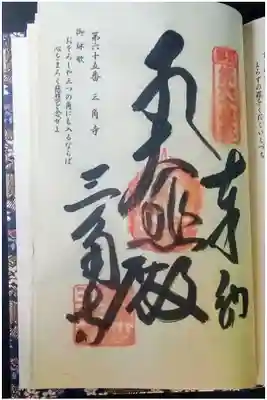 奉納
大悲殿
三角寺
第六十五番　三角寺
御詠歌
おそろしや三つの角にも入るならば
心をまろく慈悲を念ぜよ